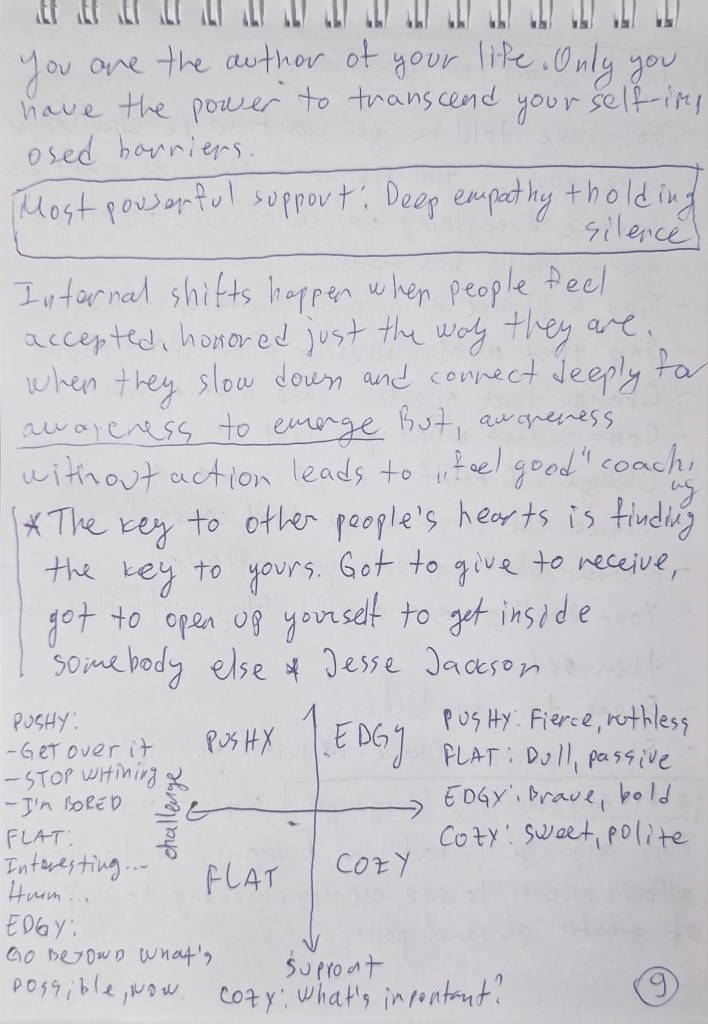 You are the author of your life. Only you
have the power to transcend your self-imp
osed barriers.
Most powerful support: Deep empathy + holding
silence
Internal shifts happen when people feel
accepted, honored just the way they are.
when they slow down and connect deeply for
awareness to emerge But, awareness
without action leads to „feel good" coachi
ng
* The key to other people's hearts is finding
the key to yours. Got to give to receive,
got to open up yourself to get inside
somebody else * Jesse Jackson
PUSHY:
- Get over it
- STOP WHINING
- I'm BORED
FLAT:
Interesting...
Hmm...
EDGY:
Go BEYOND what's
possible, now.
PUSHY
EDGY
challenge
FLAT
COZY
support
COZY: What's inportant?
PUSHY: Fierce, ruthless
FLAT: Dull, passive
EDGY: Brave, bold
COZY: sweet, polite
9